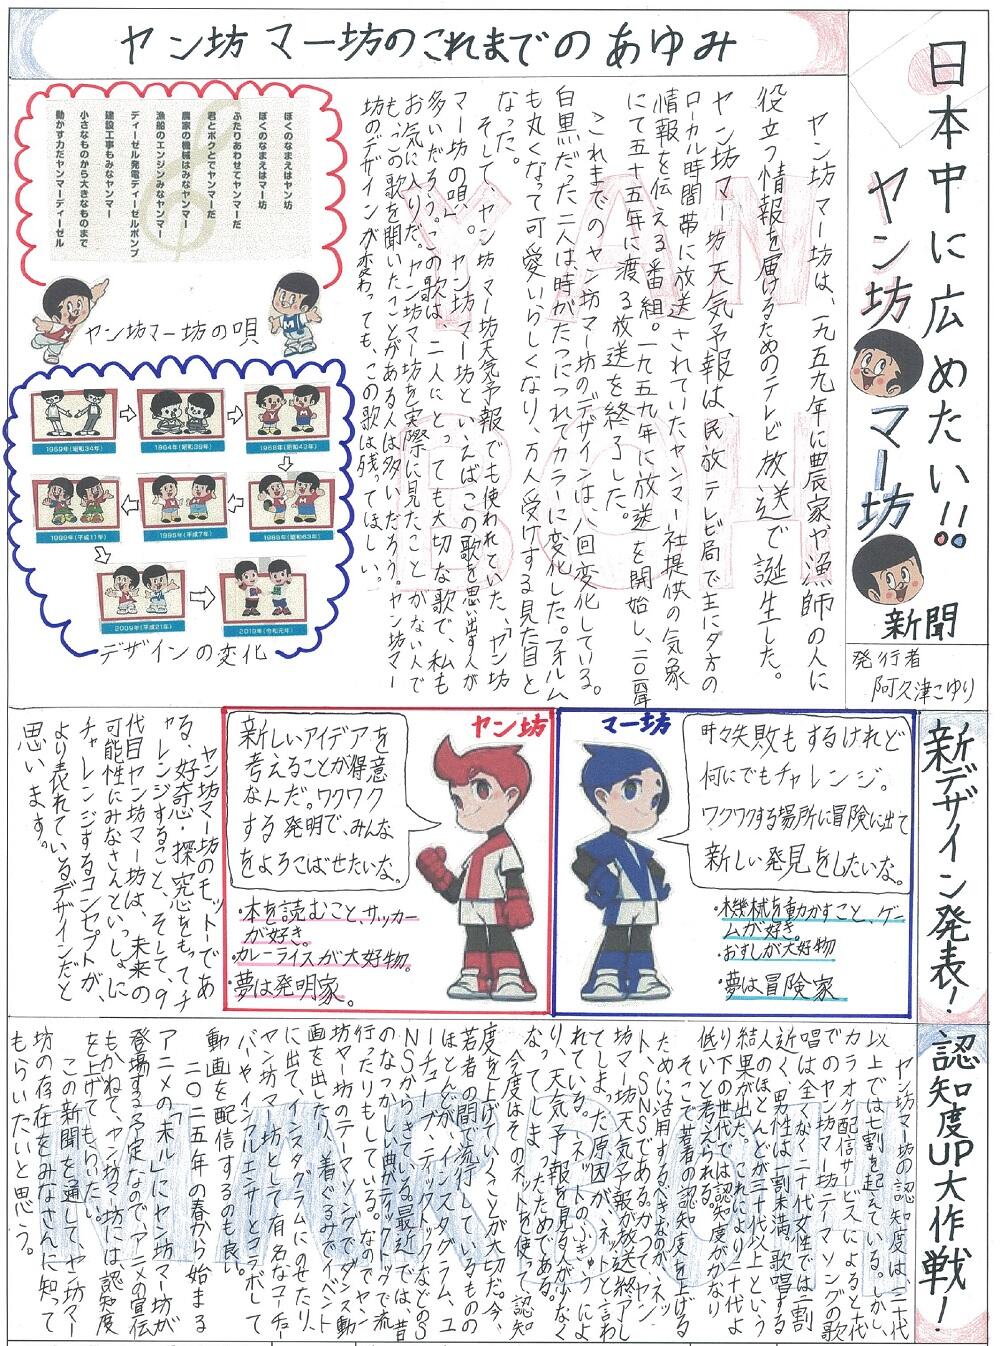 日本中に広めたい!!
ヤン坊マー坊
新聞
発行者
阿久津こゆり
ヤン坊マー坊のこれまでのあゆみ
ヤン坊マー坊は、一九五九年に農家や漁師の人に
役立つ情報を届けるためのテレビ放送で誕生した。
ヤン坊マー坊天気予報は、民放テレビ局で主に夕方の
ローカル時間帯に放送されていた、ヤンマー社提供の気象
情報を伝える番組。一九五九年に放送を開始し、二〇一四年
にて五十五年に渡る放送を終了した。
これまでのヤン坊マー坊のデザインは、八回変化している。
白黒だった二人は、時がたつにつれてカラーに変化した。フォルム
も丸くなって可愛いらしくなり、万人受けする見た目と
なった。
そして、ヤン坊マー坊天気予報でも使われていた、「ヤン坊
マー坊の唄」。ヤン坊マー坊といえばこの歌を思い出す人が
多いだろう。この歌は、二人にとっても大切な歌で、私も
お気に入りだ。ヤン坊マー坊を実際に見たことがない人で
も、この歌を聞いたことがある人は多いだろう。ヤン坊マー
坊のデザインが変わっても、この歌は残ってほしい。
YAN
BOH
ぼくのなまえはヤン坊
ぼくのなまえはマー坊
ふたりあわせてヤンマーだ
君とボクとでヤンマーだ
農家の機械はみなヤンマー
漁船のエンジンみなヤンマー
ディーゼル発電ディーゼルポンプ
建設工事もみなヤンマー
小さなものから大きなものまで
動かす力だヤンマーディーゼル
ヤン坊マー坊の唄
1959年(昭和34年)
1964年(昭和39年)
1968年(昭和43年)
1988年(昭和63年)
1995年(平成7年)
1999年(平成11年)
2009年(平成21年)
2019年(令和元年)
デザインの変化
新デザイン発表!
マー坊
時々失敗もするけれど
何にでもチャレンジ。
ワクワクする場所に冒険に出て
新しい発見をしたいな。
・機械を動かすこと、ゲー
ムが好き。
・おすしが大好物
・夢は冒険家
ヤン坊
新しいアイデアを
考えることが得意
なんだ。ワクワク
する発明で、みんな
をよろこばせたいな。
・本を読むこと、サッカー
が好き。
・カレーライスが大好物。
・夢は発明家。
ヤン坊マー坊のモットーであ
る、好奇心・探究心をもってチ
ャレンジすること、そして、9
代目ヤン坊マー坊は、未来の
可能性にみなさんといっしょに
チャレンジするコンセプトが、
より表れているデザインだと
思います。
認知度UP大作戦!
ヤン坊マー坊の認知度は、三十代
以上では七割を超えている。しかし、
カラオケ配信サービスによると、十代
でのヤン坊マー坊テーマソングの歌
唱は全くなく、二十代女性では二割
近く、男性は一割未満。歌唱する
人のほとんどが三十代以上という
結果が出た。これにより二十代よ
り下の世代では認知度がかなり
低いと考えられる。
そこで若者の認知度を上げる
ために活用するべきなのが、ネッ
ト、SNSである。かつてヤン
坊マー坊天気予報が放送終了し
てしまった原因が、ネットと言わ
れている。ネットのふきゅうによ
り、天気予報を見る人が少なく
なってしまったためである。
今度はそのネットを使って認知
度を上げていくことが大切だ。今、
若者の間で流行しているものの
ほとんどが、インスタグラム、ユ
ーチューブ、ティックトックなどのS
NSからきている。最近では、昔
のなつかしい曲がティックトックで流
行ったりもしている。なのでヤン
坊マー坊のテーマソングでダンス動
画を出したり、着ぐるみでイベント
に出て、インスタグラムにのせたり、
ヤン坊マー坊として有名なユーチュー
バーやインフルエンサーとコラボして
動画を配信するのも良い。
二〇二五年の春から始まる
アニメの「未ル」にヤン坊マー坊が
登場する予定なので、アニメの宣伝
もかねて、ヤン坊マー坊には認知度
を上げてもらいたい。
この新聞を通して、ヤン坊マー
坊の存在をみなさんに知って
もらいたいと思う。
MARBOH